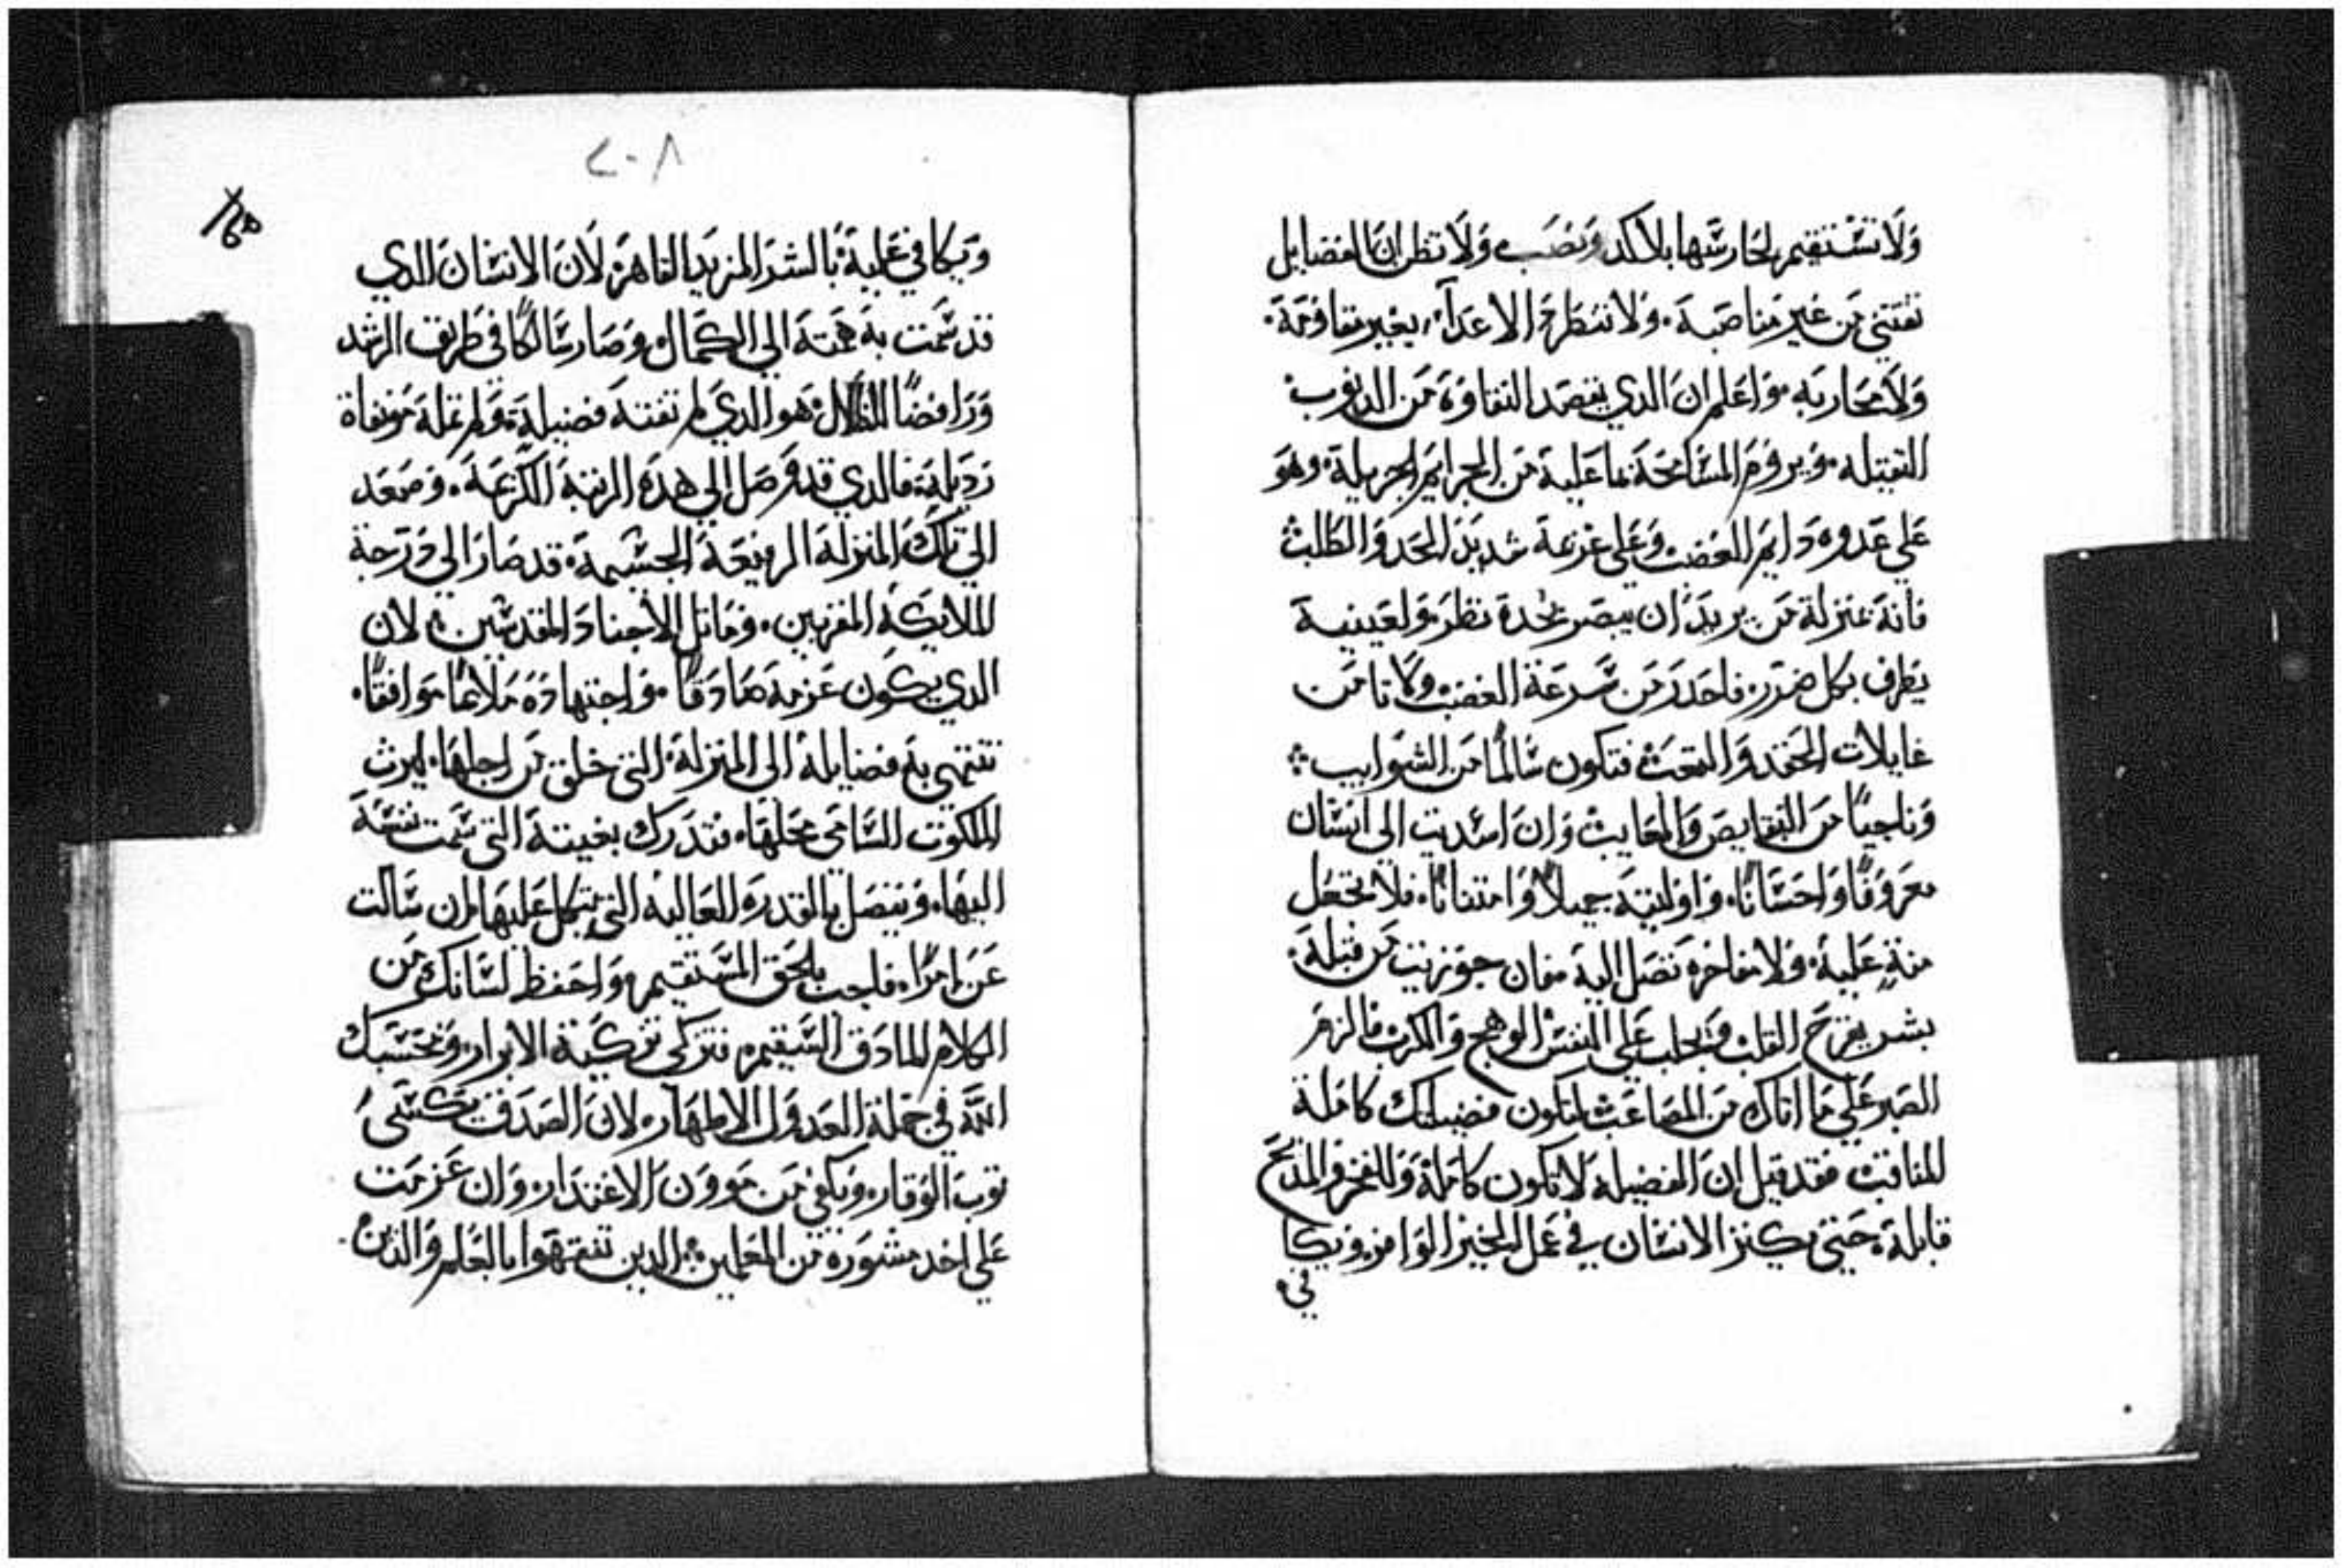 ولا تستقيم لحارسها بلا كد ونصب ولا تظن ان الفضايل
تقتني من غير مناصبة. ولا تنطرح الاعدآء بغير مقاومة.
ولا محاربه. واعلم ان الدي يقصد النقاوة من الدنوب
التقيله. ويروم المسامحة بما علية من الجرايم الجزيلة. وهو
علي عدوه دايم الغضب وعلى عزمة شديد الحقد والكلب
فانة بمنزلة من يريد ان يبصر بحدة نظر ولعينية
يطرف بكل ضرر. فاحدر من سرعة الغضب ولا تامن
غايلات الحقد والمقت فتكون سالمًا من الشوايب
وناجيًا من النقايص والمعايب وان اسديت الى انسان
معروفًا واحسانًا. واوليتة جميلاً وامتنانًا. فلا تجعل
منةٍ علية. ولا مفاخرة تصل الية فان جوزيت من قبلة.
بشر يقرح القلب ويجلب على النفس الوهج والكرب فالزم
الصبر علي ما اتاك من المصاعب لتكون فضيلتك كاملة
المناقب فقد قيل ان الفضيلة لا تكون كاملة وللفخر والمدح
قابلة. حتى يكنز الانسان في عمل الخير الوافر. ويكا
في
٢٠٨
ويكافي علية بالشر المزيد القاهر. لان الانسان الدي
قد سمت به همتة الي الكمال وصار سالكًا في طريق الرشد
ورافضًا الضلال. هو الدي لم تفتة فضيلة. ولم تملة موافاة
رديلة. فالدي قد وصل الي هدة الرتبة الكريمة. وصعد
الي تلك المنزلة الرفيعة الجسيمة. قد صار الي درجة
الملايكة المقربين. وماتل الاجناد المقدسين. لان
الدي يكون عزمة صادقًا. واجتهادة ملايمًا موافقًا.
تنتهي بة فضايلة الى المنزلة التي خلق من اجلها. ليرث
الملكوت السامي محلها. فتدرك بغيتة التي سمت نفسة
اليها. وتتصل بالقدرة العالية التي يتكل عليها. ان سالت
عن امرًا. فاجب بالحق المستقيم. واحفظ لسانك من
الكلام المادق السقيم. فتزكي تزكية الابرار. ويحسبك
اللة في جملة العدول الاطهار. لان الصدق يكسي
توب الوقار. ويكفي من موون الاعتدار. وان عزمت
علي اخد مشورة من المعلمين. الدين تفقهوا بالعلم والدين.